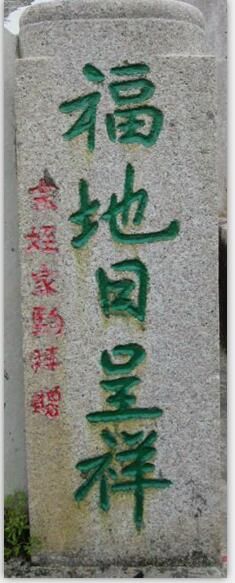 福地日呈祥
姪家駒拜贈